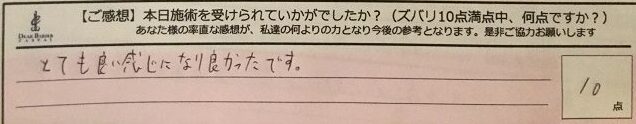 【ご感想】本日施術を受けられていかがでしたか？（ズバリ10点満点中、何点ですか？）
あなた様の率直な感想が、私達の何よりの力となり今後の参考となります。是非ご協力お願いします
とても良い感じになり良かったです。
10
点